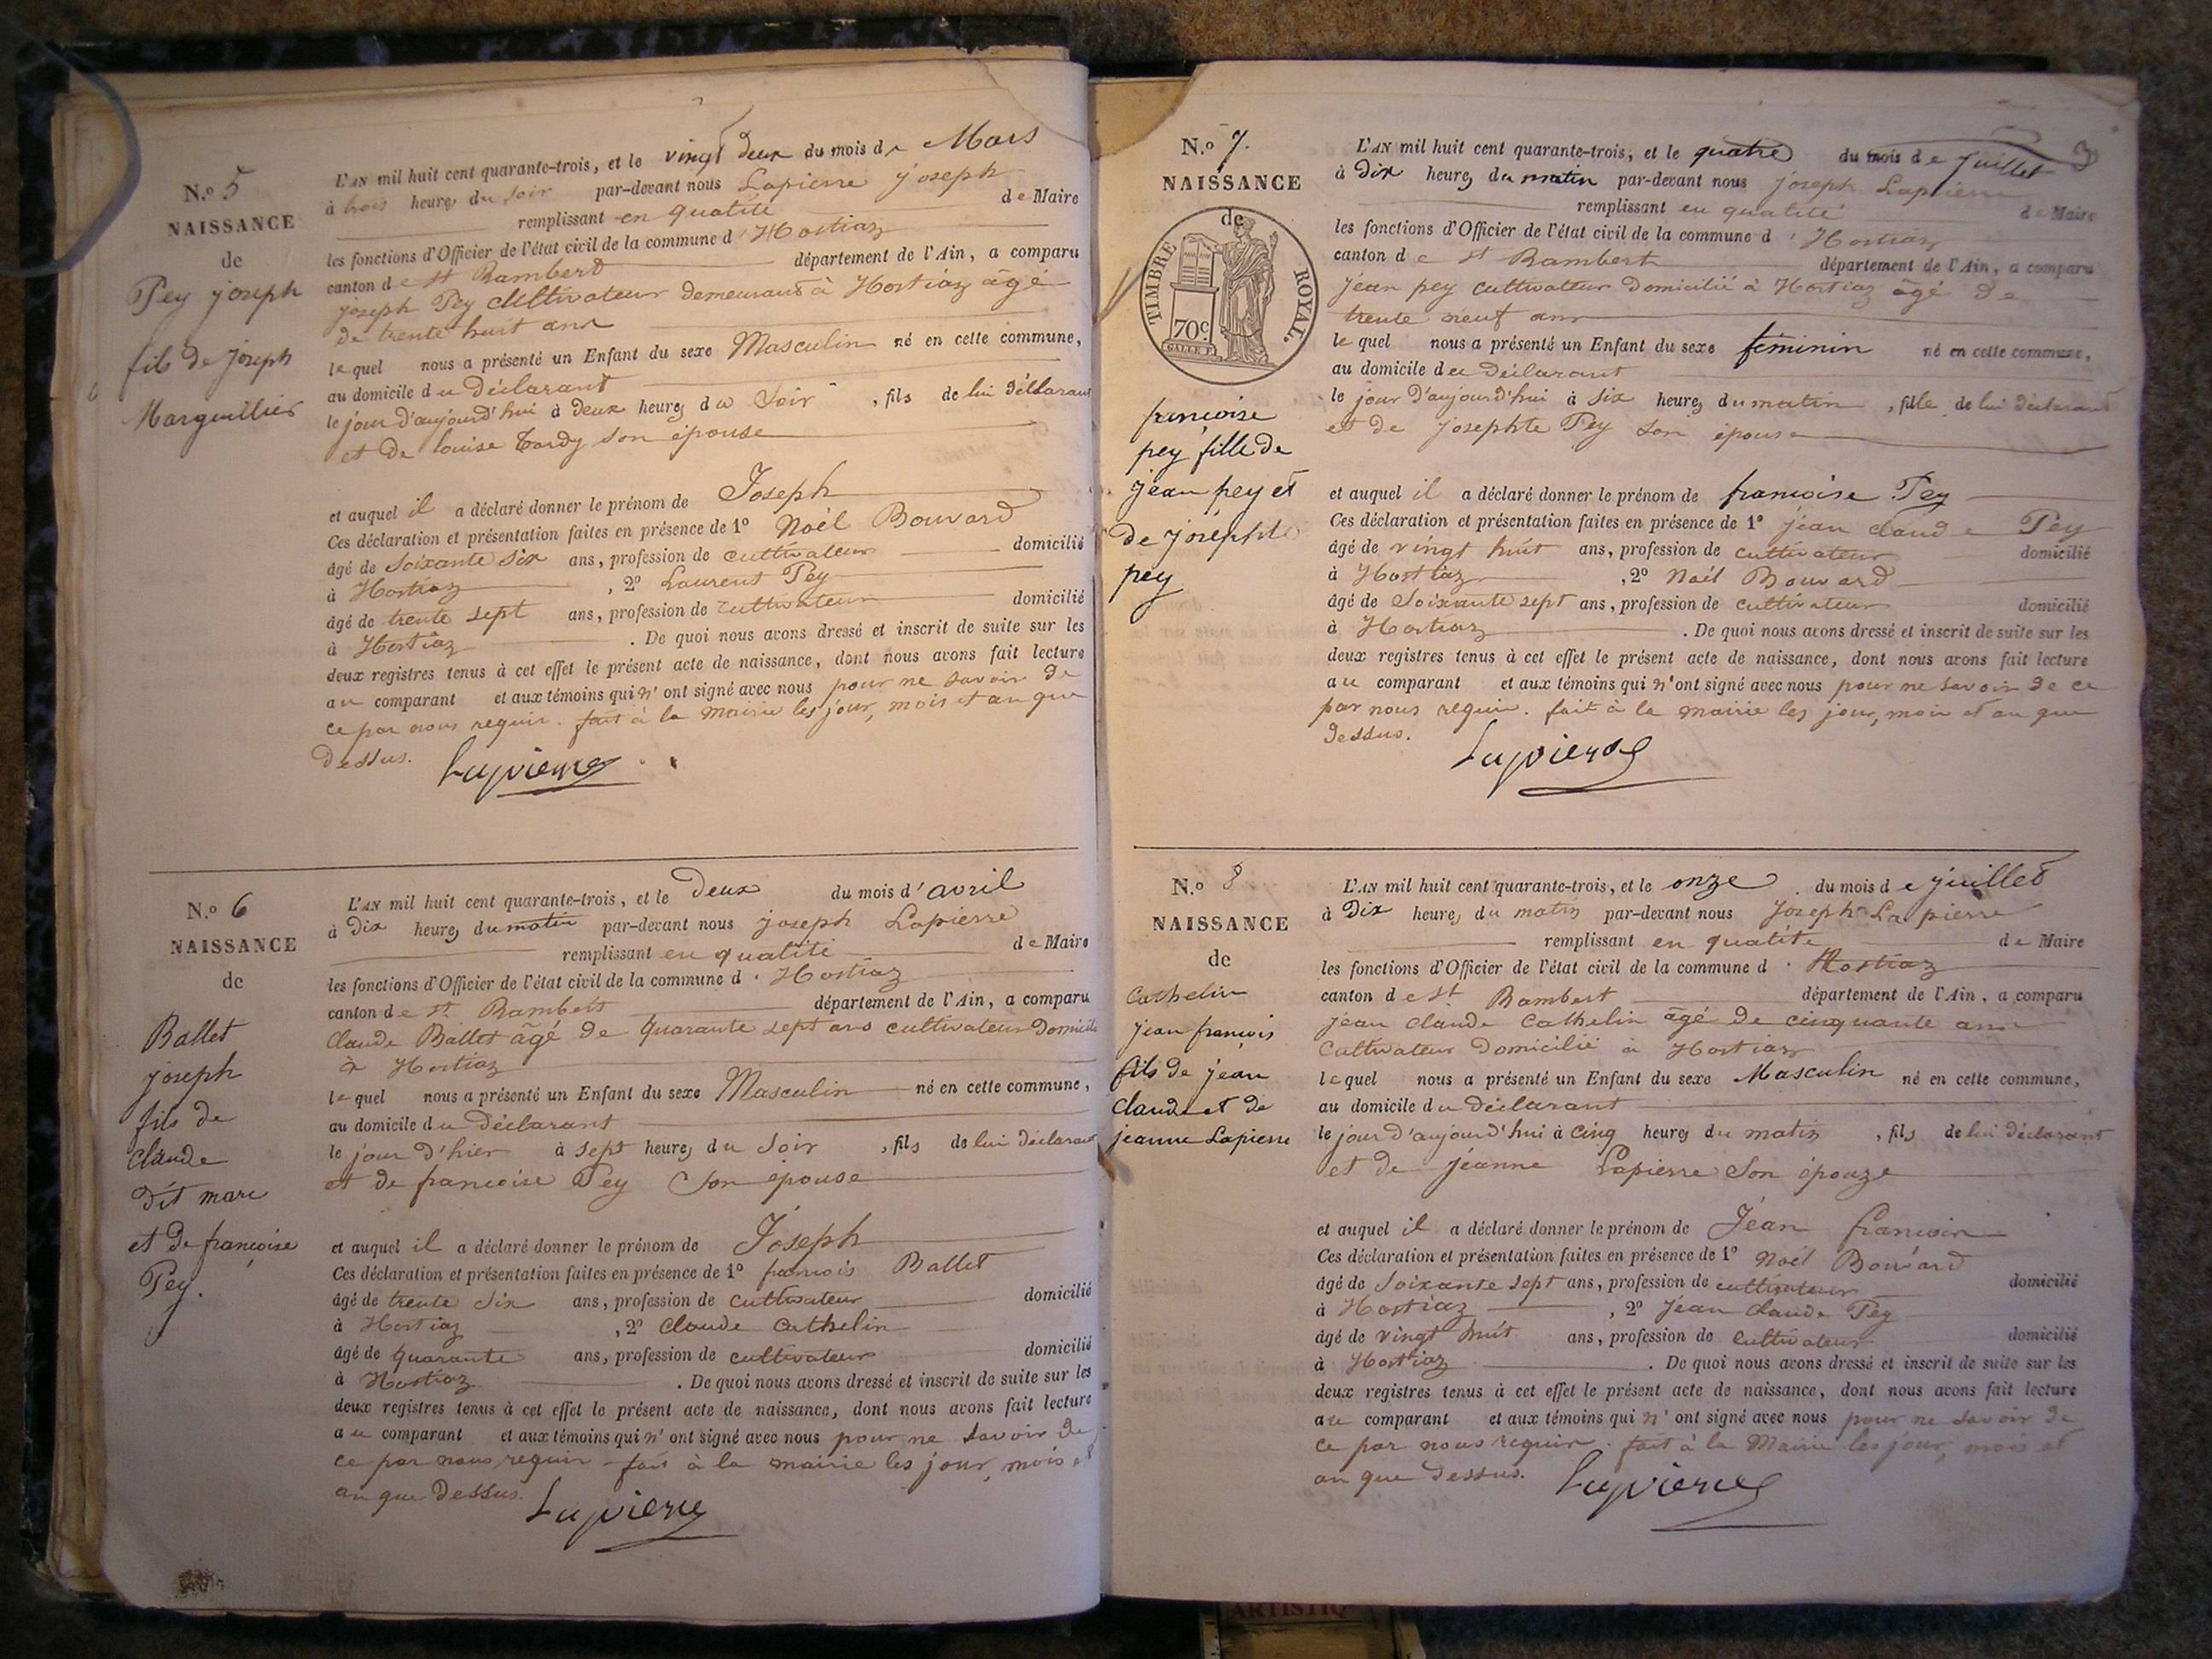 N.o 5
NAISSANCE
de
Pey joseph
fils de joseph
Marguillier
L'AN mil huit cent quarante-trois, et le vingt deux du mois de Mars
à trois heures du soir par-devant nous Lapierre joseph
remplissant en qualité de Maire
les fonctions d'Officier de l'état civil de la commune d'Hostiaz
canton de st Rambert département de l'Ain, a comparu
joseph Pey cultivateur demeurant à Hostiaz âgé
de trente huit ans
lequel nous a présenté un Enfant du sexe Masculin né en cette commune,
au domicile du Déclarant
le jour d'aujourd'hui à deux heures du soir, fils de lui déclarant
et de louise Tardy son épouse
et auquel il a déclaré donner le prénom de Joseph
Ces déclaration et présentation faites en présence de 1° Noél Bouvard
âgé de soixante six ans, profession de cultivateur domicilié
à Hostiaz, 2° Laurent Pey
âgé de trente sept ans, profession de cultivateur domicilié
à Hostiaz. De quoi nous avons dressé et inscrit de suite sur les
deux registres tenus à cet effet le présent acte de naissance, dont nous avons fait lecture
au comparant et aux témoins qui n'ont signé avec nous pour ne savoir de
ce par nous requir. fait à la mairie les jour, mois et an que
dessus. Lapierre
N.o 6
NAISSANCE
de
Ballet
joseph
fils de
claude
dit marc
et de francoise
Pey.
L'AN mil huit cent quarante-trois, et le Deux du mois d'avril
à Dix heures du matin par-devant nous joseph Lapierre
remplissant en qualité de Maire
les fonctions d'Officier de l'état civil de la commune d'Hostiaz
canton de st Rambert département de l'Ain, a comparu
Claude Ballet âgé de quarante sept ans cultivateur Domicilié
à Hostiaz
lequel nous a présenté un Enfant du sexe Masculin né en cette commune,
au domicile du Déclarant
le jour d'hier à sept heures du soir, fils de lui déclarant
et de francoise Pey son épouse
et auquel il a déclaré donner le prénom de Joseph
Ces déclaration et présentation faites en présence de 1° francois Ballet
âgé de trente six ans, profession de cultivateur domicilié
à Hostiaz, 2° claude Cathelin
âgé de quarante ans, profession de cultivateur domicilié
à Hostiaz. De quoi nous avons dressé et inscrit de suite sur les
deux registres tenus à cet effet le présent acte de naissance, dont nous avons fait lecture
au comparant et aux témoins qui n'ont signé avec nous pour ne savoir de
ce par nous requir fait à la mairie les jour, mois et
an que dessus. Lapierre
N.o 7.
NAISSANCE
de
TIMBRE ROYAL.
70c.
francoise
pey fille de
jean pey et
de joséphte
pey
L'AN mil huit cent quarante-trois, et le quatre du mois de juillet
à Dix heures du matin par-devant nous joseph Lapierre
remplissant en qualité de Maire
les fonctions d'Officier de l'état civil de la commune d'Hostiaz
canton de st Rambert département de l'Ain, a comparu
jean pey cultivateur Domicilié à Hostiaz âgé de
trente neuf ans
lequel nous a présenté un Enfant du sexe féminin né en cette commune,
au domicile du déclarant
le jour d'aujourd'hui à six heures du matin, fille de lui déclarant
et de josephte Pey son épouse
et auquel il a déclaré donner le prénom de francoise Pey
Ces déclaration et présentation faites en présence de 1° jean claude Pey
âgé de vingt huit ans, profession de cultivateur domicilié
à Hostiaz, 2° Noél Bouvard
âgé de soixante sept ans, profession de cultivateur domicilié
à Hostiaz. De quoi nous avons dressé et inscrit de suite sur les
deux registres tenus à cet effet le présent acte de naissance, dont nous avons fait lecture
au comparant et aux témoins qui n'ont signé avec nous pour ne savoir de ce
par nous requir. fait à la mairie les jour, mois et an que
dessus. Lapierre
N.o 8
NAISSANCE
de
Cathelin
jean francois
fils de jean
claude et de
jeanne Lapierre
L'AN mil huit cent quarante-trois, et le onze du mois de juillet
à Dix heures du matin par-devant nous Joseph Lapierre
remplissant en qualité de Maire
les fonctions d'Officier de l'état civil de la commune d'Hostiaz
canton de st Rambert département de l'Ain, a comparu
jean claude Cathelin âgé de cinquante ans
Cultivateur Domicilié à Hostiaz
lequel nous a présenté un Enfant du sexe Masculin né en cette commune,
au domicile du Déclarant
le jour d'aujourd'hui à cinq heures du matin, fils de lui Déclarant
et de jéanne Lapierre son épouze
et auquel il a déclaré donner le prénom de Jéan francois
Ces déclaration et présentation faites en présence de 1° Noél Bouvard
âgé de soixante sept ans, profession de cultivateur domicilié
à Hostiaz, 2° Jean claude Pey
âgé de vingt huit ans, profession de cultivateur domicilié
à Hostiaz. De quoi nous avons dressé et inscrit de suite sur les
deux registres tenus à cet effet le présent acte de naissance, dont nous avons fait lecture
au comparant et aux témoins qui n'ont signé avec nous pour ne savoir de
ce par nous requir. fait à la Mairie les jour, mois et
an que dessus. Lapierre
ARTISTIQ